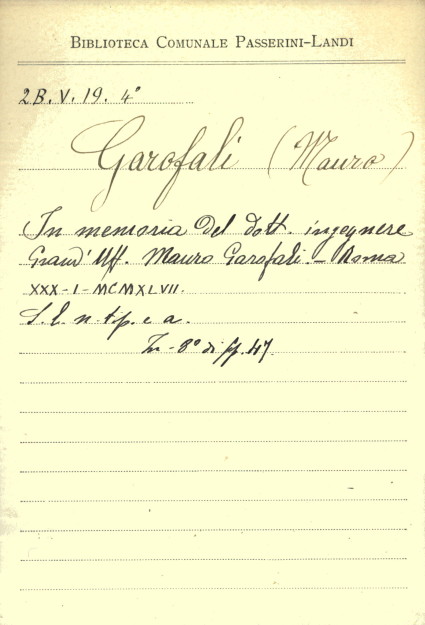 BIBLIOTECA COMUNALE PASSERINI-LANDI
2B. V. 19. 4°
Garofali (Mauro)
In memoria del dott. ingegnere
Grand' Uff. Mauro Garofali. - Roma
XXX - I - MCMXLVII.
S. l. n. tip. e a.
In - 8° di pp. 47.